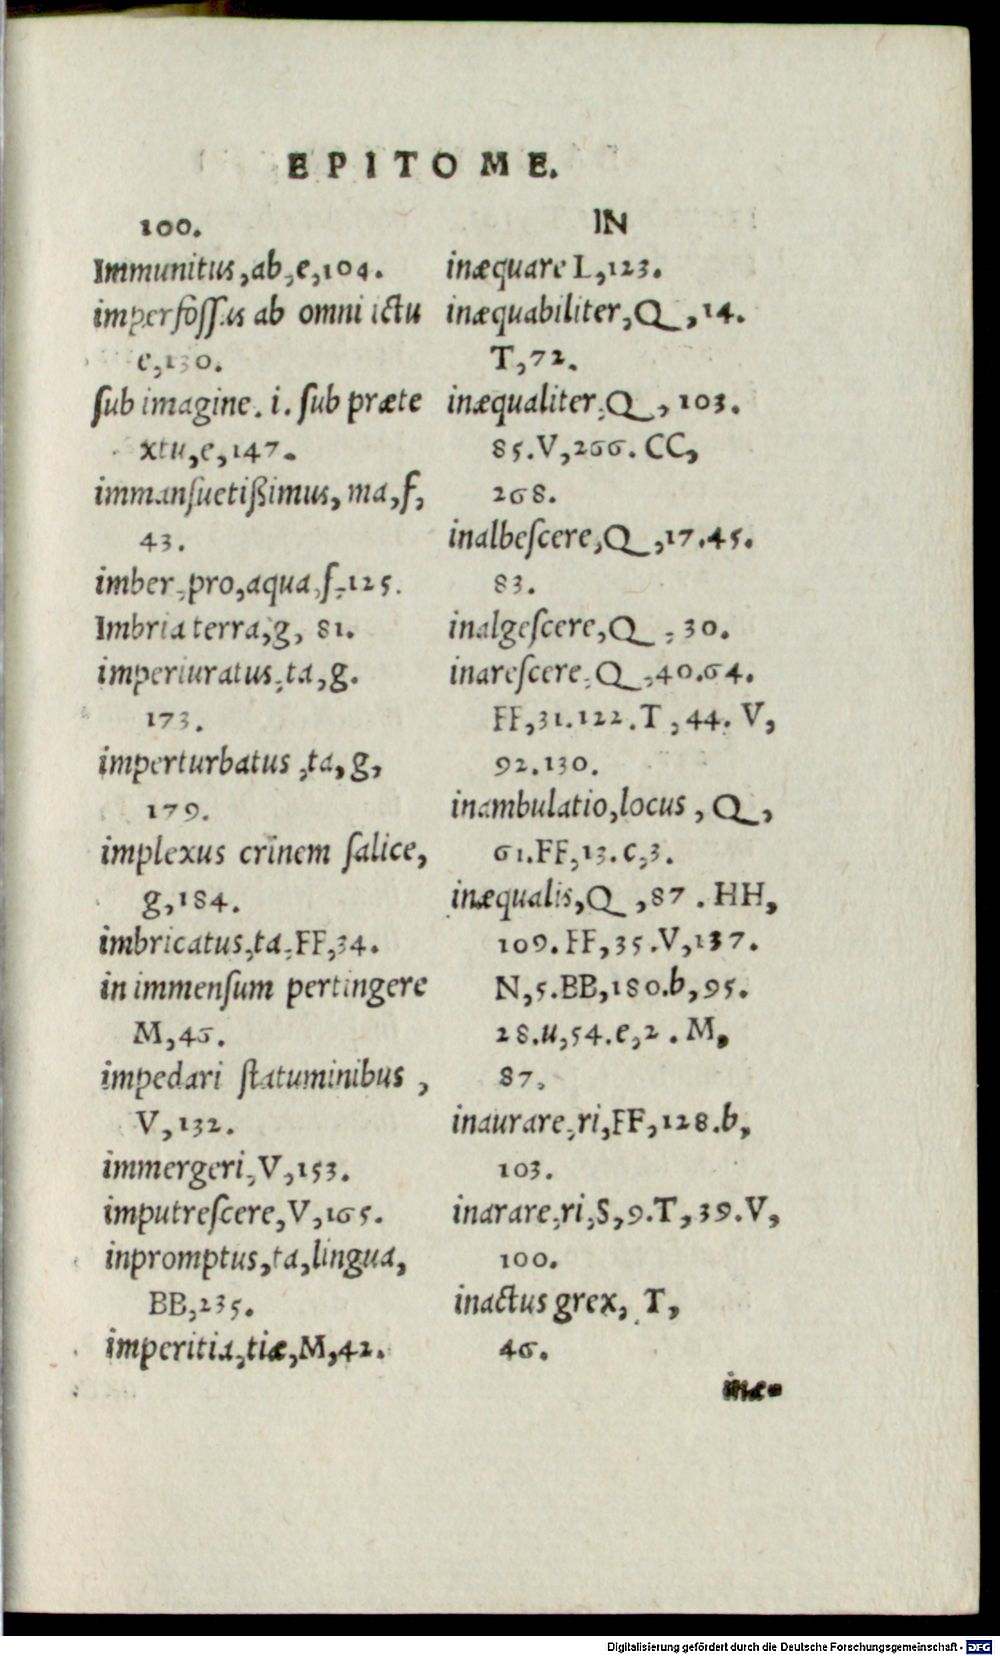 EPITOME.
100.
Immunitus, ab, e, 104.
imperfossus ab omni ictu
e, 130.
sub imagine. i. sub præte
xtu, e, 147.
immansuetißimus, ma, f,
43.
imber, pro, aqua, f, 125.
Imbria terra, g, 81.
imperiuratus, ta, g.
173.
imperturbatus, ta, g,
179.
implexus crinem salice,
g, 184.
imbricatus, ta, FF, 34.
in immensum pertingere
M, 46.
impedari statuminibus,
V, 132.
immergeri, V, 153.
imputrescere, V, 165.
inpromptus, ta, lingua,
BB, 235.
imperitia, tiæ, M, 42.
IN
inæquare L, 123.
inæquabiliter, Q, 14.
T, 72.
inæqualiter, Q, 103.
85. V, 266. CC,
268.
inalbescere, Q, 17. 45.
83.
inalgescere, Q, 30.
inarescere, Q, 40. 64.
FF, 31. 122. T, 44. V,
92. 130.
inambulatio, locus, Q,
61. FF, 13. c, 3.
inæqualis, Q, 87. HH,
109. FF, 35. V, 137.
N, 5. BB, 180. b, 95.
28. u, 54. e, 2. M,
87.
inaurare, ri, FF, 128. b,
103.
inarare, ri, S, 9. T, 39. V,
100.
inactus grex, T,
46.
inæ-
Digitalisierung gefördert durch die Deutsche Forschungsgemeinschaft - DFG